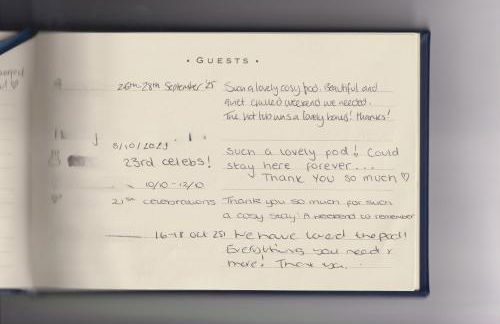 • GUESTS •
26th-28th September '25 Such a lovely cosy pod. Beautiful and
quiet chilled weekend we needed.
The hot tub was a lovely bonus! Thanks!
8/10/2025 Such a lovely pod! Could
23rd celebs! stay here forever...
Thank you so much ♡
10/10 - 12/10
21st celebrations Thank you so much for such
a cosy stay! A weekend to remember
16-18 Oct 25! We have loved the pod!
Everything you need &
more! Thank you.